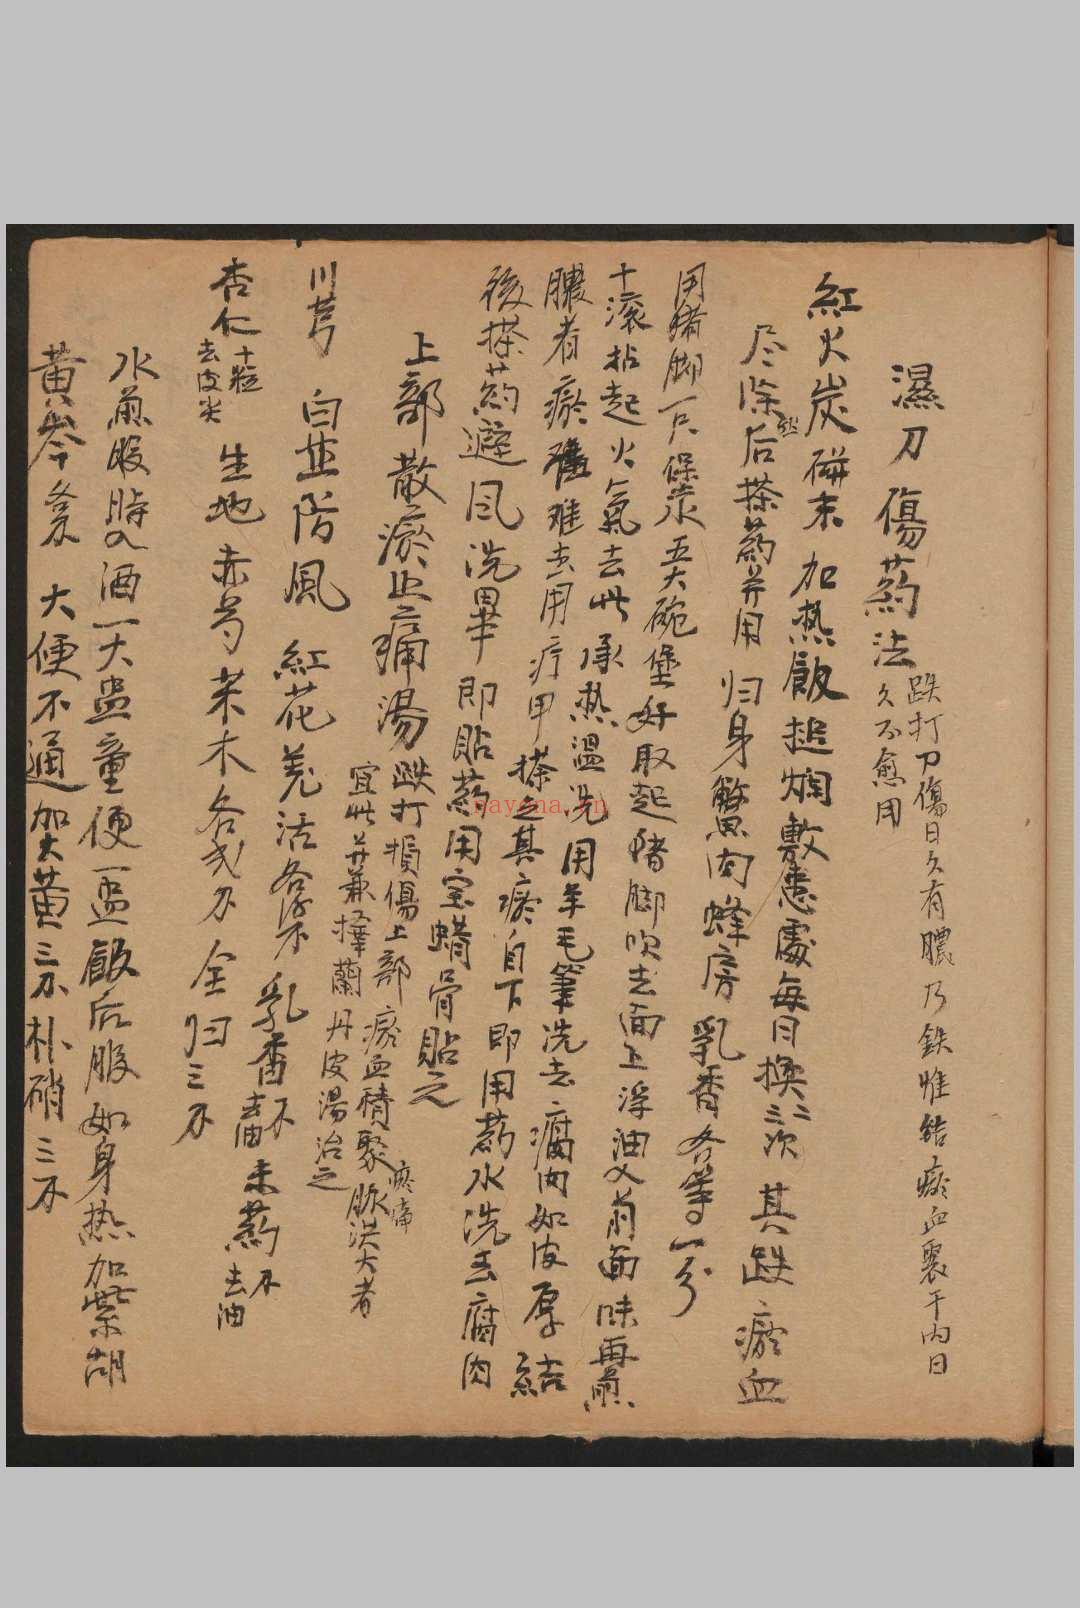 濕刀傷药法
跌打刀傷日久有膿乃鉄惟結瘀血裹于内日
久不愈用
紅火炭碰末加热飯搥爛敷患處每日換二三次其跌瘀血
尽除后搽药并用归身蟹肉蜂房乳香各等一分
用猪脚一只保水五大碗堡好取起猪脚吹去面上浮油又荷面味再煎
十滚拈起火氣去此承热温洗用羊毛筆洗去腐肉如皮厚結
膿者瘀難去用疔甲搽之其瘀自下即用药水洗去腐肉
後搽药避风洗畢即貼药用宝蜡骨貼之
上部散瘀止痛湯
跌打損傷上部瘀血積聚疼痛脉洪大者
宜此并兼擇蘭丹皮湯治之
川芎 白芷 防風 紅花 羌活 乳香去油 末药去油
杏仁十粒去皮尖 生地 赤芍 全归三
水煎服時入酒一大盅童便一盃飯后服如身热加柴胡
黄芩 大便不通加大黄三 朴硝三
nayona.cn